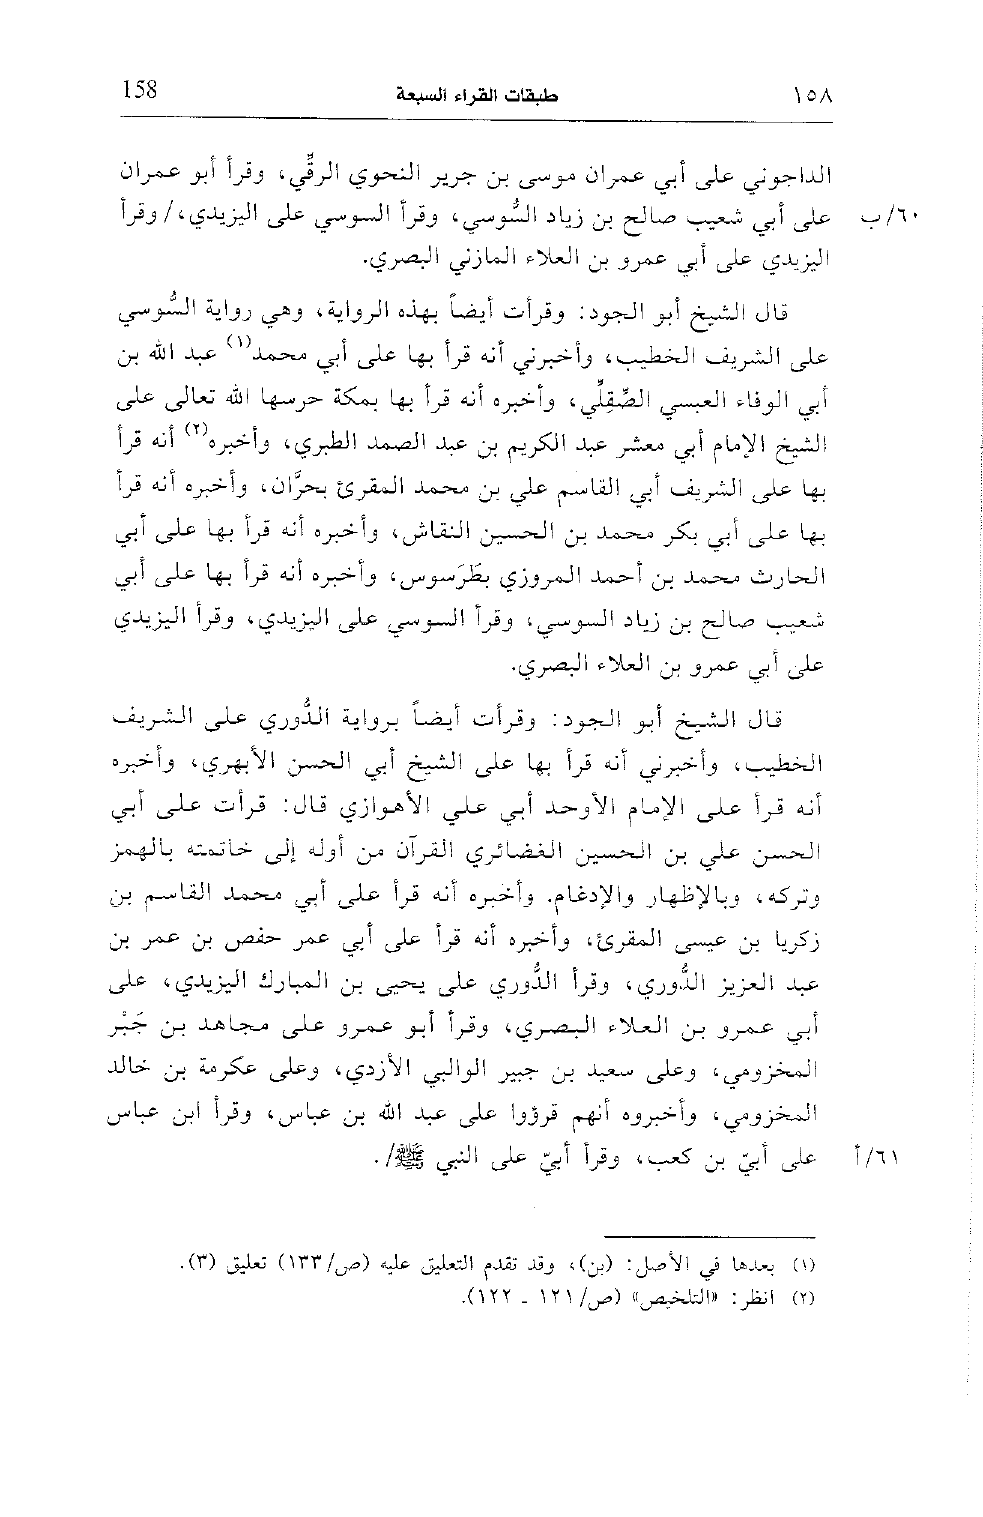 ١٥٨ طبقات القراء السبعة 158
الداجوني على أبي عمران موسى بن جرير النحوي الرقّي، وقرأ أبو عمران
٦٠/ب على أبي شعيب صالح بن زياد السُّوسي، وقرأ السوسي على اليزيدي،/ وقرأ
اليزيدي على أبي عمرو بن العلاء المازني البصري.
قال الشيخ أبو الجود: وقرأت أيضاً بهذه الرواية، وهي رواية السُّوسي
على الشريف الخطيب، وأخبرني أنه قرأ بها على أبي محمد(١) عبد الله بن
أبي الوفاء العبسي الصِّقِلِّي، وأخبره أنه قرأ بها بمكة حرسها الله تعالى على
الشيخ الإمام أبي معشر عبد الكريم بن عبد الصمد الطبري، وأخبره(٢) أنه قرأ
بها على الشريف أبي القاسم علي بن محمد المقرئ بحرَّان، وأخبره أنه قرأ
بها على أبي بكر محمد بن الحسين النقاش، وأخبره أنه قرأ بها على أبي
الحارث محمد بن أحمد المروزي بطَرَسوس، وأخبره أنه قرأ بها على أبي
شعيب صالح بن زياد السوسي، وقرأ السوسي على اليزيدي، وقرأ اليزيدي
على أبي عمرو بن العلاء البصري.
قال الشيخ أبو الجود: وقرأت أيضاً برواية الدُّوري على الشريف
الخطيب، وأخبرني أنه قرأ بها على الشيخ أبي الحسن الأبهري، وأخبره
أنه قرأ على الإمام الأوحد أبي علي الأهوازي قال: قرأت على أبي
الحسن علي بن الحسين الغضائري القرآن من أوله إلى خاتمته بالهمز
وتركه، وبالإظهار والإدغام. وأخبره أنه قرأ على أبي محمد القاسم بن
زكريا بن عيسى المقرئ، وأخبره أنه قرأ على أبي عمر حفص بن عمر بن
عبد العزيز الدُّوري، وقرأ الدُّوري على يحيى بن المبارك اليزيدي، على
أبي عمرو بن العلاء البصري، وقرأ أبو عمرو على مجاهد بن جَبْر
المخزومي، وعلى سعيد بن جبير الوالبي الأزدي، وعلى عكرمة بن خالد
المخزومي، وأخبروه أنهم قرؤوا على عبد الله بن عباس، وقرأ ابن عباس
٦١/أ على أبيّ بن كعب، وقرأ أبيّ على النبي ﷺ/.
(١) بعدها في الأصل: (بن)، وقد تقدم التعليق عليه (ص/١٣٣) تعليق (٣).
(٢) انظر: «التلخيص» (ص/١٢١ ـ ١٢٢).